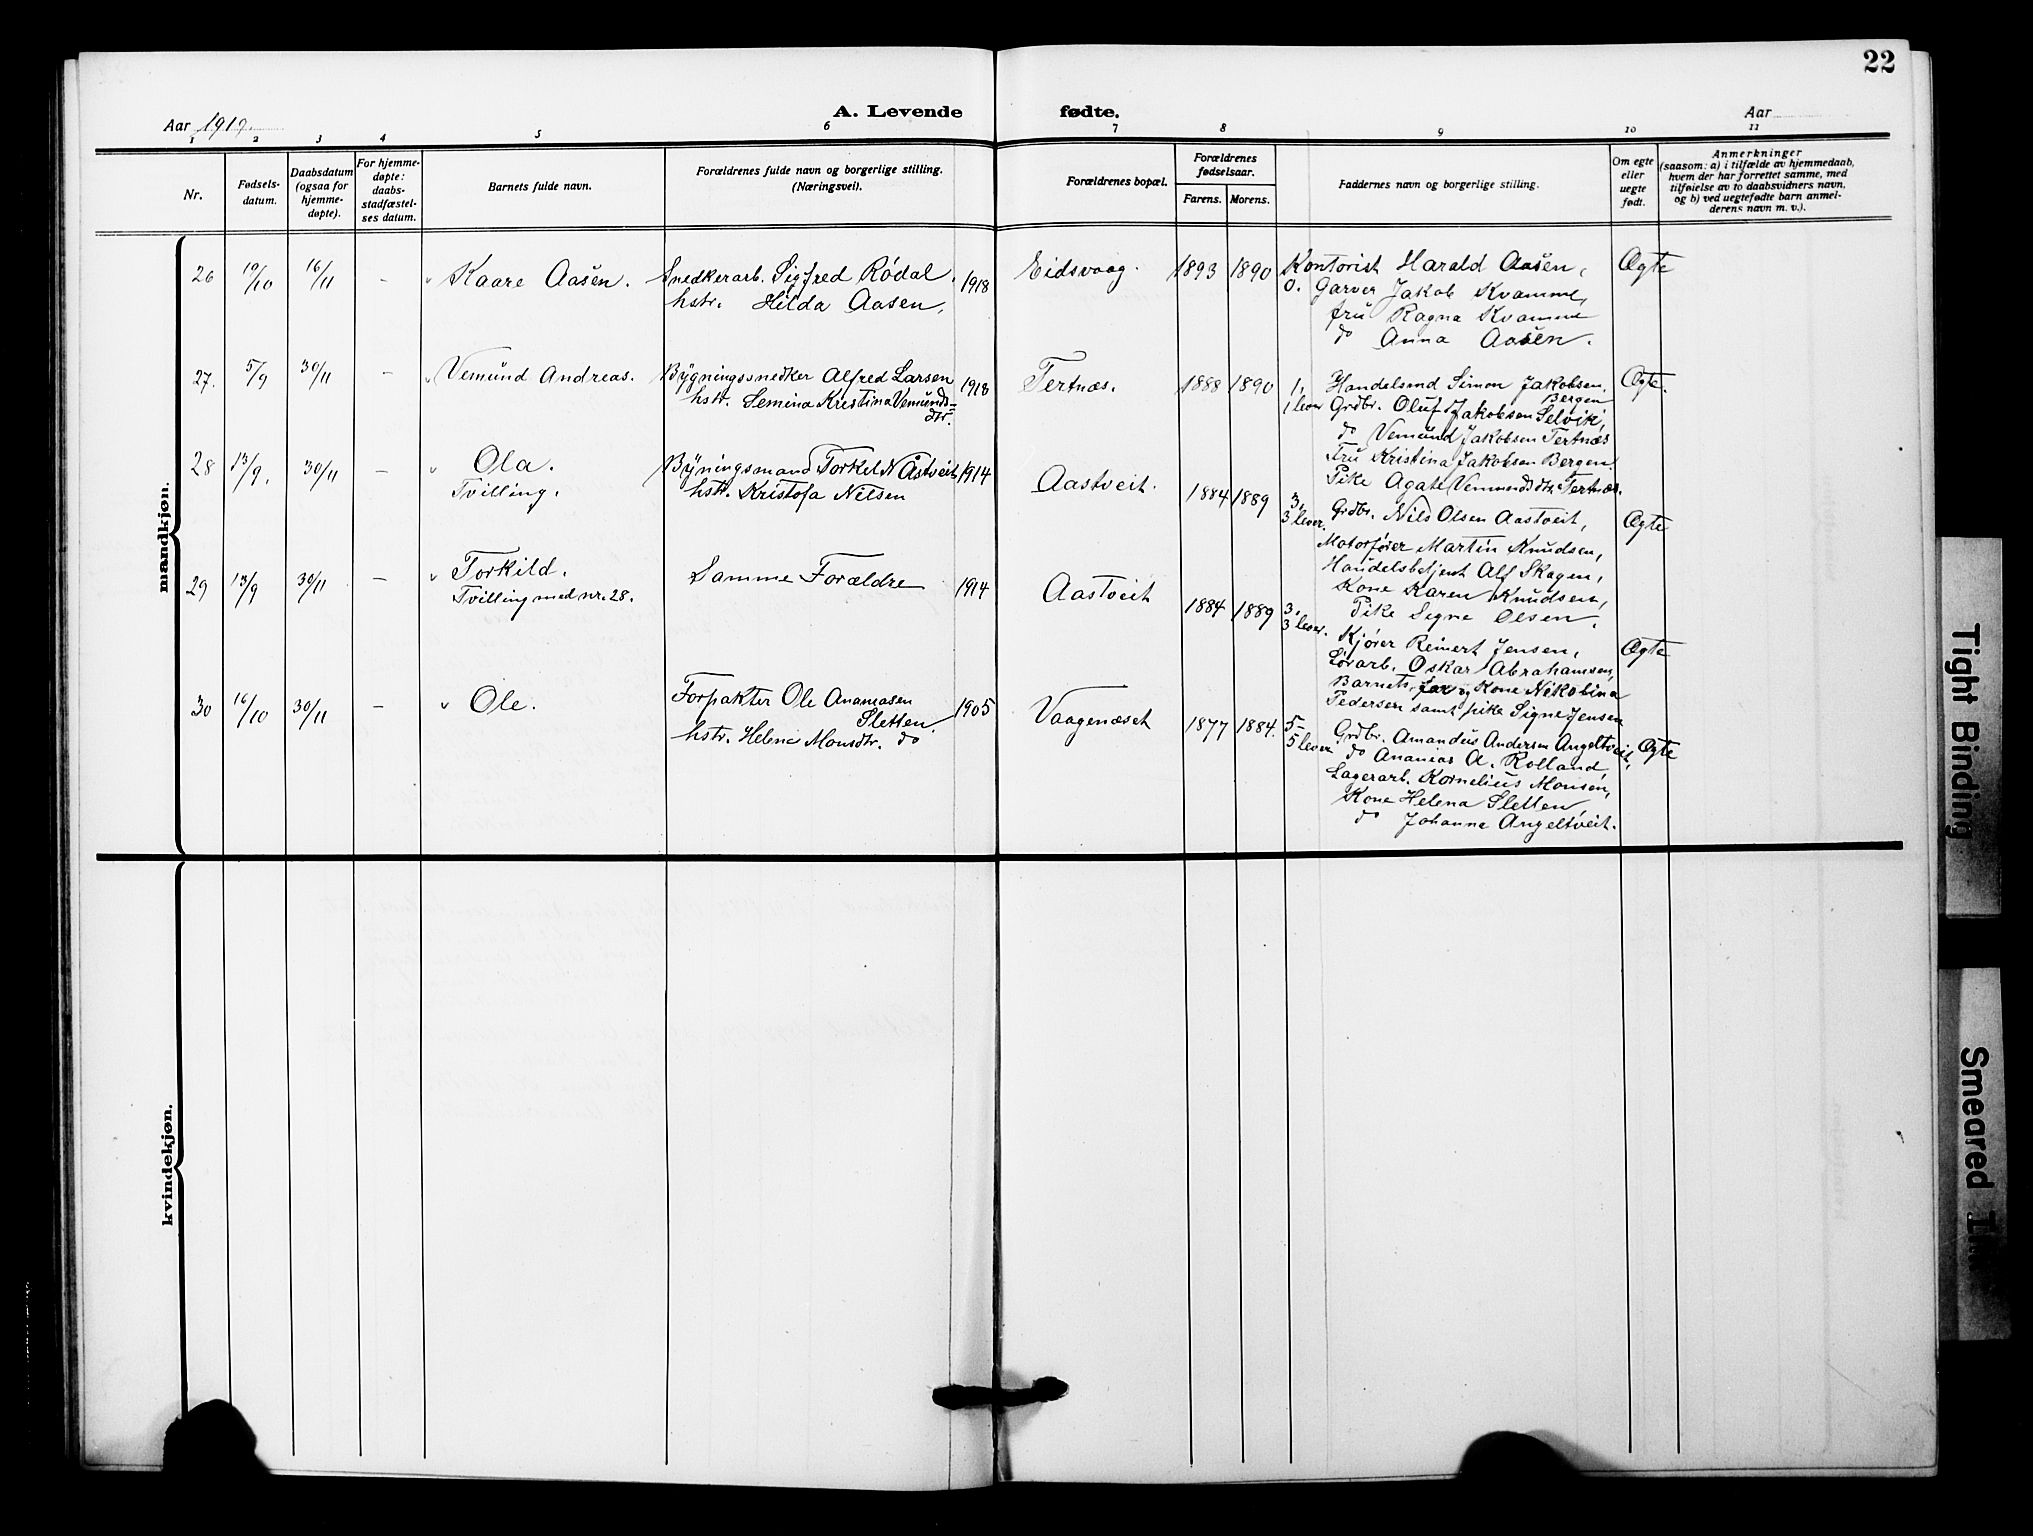 22
A. Levende fødte.
Aar 1919. Aar
1 2 3 4 5 6 7 8 9 10 11
Nr.
Fødsels-
datum.
Daabsdatum
(ogsaa for
hjemme-
døpte).
For hjemme-
døpte:
daabs-
stadfæstel-
ses datum.
Barnets fulde navn.
Forældrenes fulde navn og borgerlige stilling.
(Næringsvei).
Forældrenes bopæl.
Forældrenes
fødselsaar.
Farens. Morens.
Faddernes navn og borgerlige stilling.
Om egte
eller
uegte
født.
Anmerkninger
(saasom: a) i tilfælde av hjemmedaab,
hvem der har forrettet samme, med
tilføielse av to daabsvidners navn,
og b) ved uegtefødte barn anmel-
derens navn m. v.).
mandkjøn.
26 19/10 16/11 – " Kaare Aasen. Snedkerarb. Sigfred Rödal, 1918 Eidsvaag. 1893 1890 Kontorist Harald Aasen, Ægte
hstr. Hilda Aasen,
0. Garver Jakob Kvamme,
fru Ragna Kvamme
do Anna Aasen.
27. 5/9 30/11 – " Vemund Andreas. Bygningssnedker Alfred Larsen 1918 Tertnæs. 1888 1890 1, Handelsmd Simon Jakobsen. Ægte.
hstr. Semina Kristina Vemunds-
dtr.
Bergen
1 lever Grdbr. Oluf Jakobsen Selvik,
do Vemund Jakobsen Tertnæs
Fru Kristina Jakobsen Bergen.
Pike Agate Vemundsdtr. Tertnæs.
28 13/9. 30/11 – " Ola. Bygningsmand Torkel N Åstveit 1914 Aastveit. 1884 1889 3, Grdbr. Nils Olsen Aastveit, Ægte
Tvilling. hstr. Kristofa Nilsen
3 lever.
Motorfører Martin Knudsen,
Handelsbetjent Alf Skagen,
Kone Karen Knudsen,
Pike Signe Olsen.
29 13/9 30/11 – " Torkild. Samme Forældre 1914 Aastveit 1884 1889 3,
Tvilling med nr. 28.
3 lever.
Kjører Reinert Jensen, Ægte
Oskar Abrahamsen,
Barnets far og Kone Nikobina
Pedersen samt pike Signe Jensen
30 16/10 30/11 – " Ole. Forpakter Ole Ananiasen 1905 Vaagenæset 1877 1884. 5 Grdbr. Amandus Andersen Angeltveit, Ægte
Sletten.
hstr. Helene Monsdtr. do
5 lever
do Ananias A. Rolland,
Lagerarb. Kornelius Monsen,
Kone Helena Sletten,
do Johanna Angeltveit.
kvindekjøn.
Tight Binding
Smeared